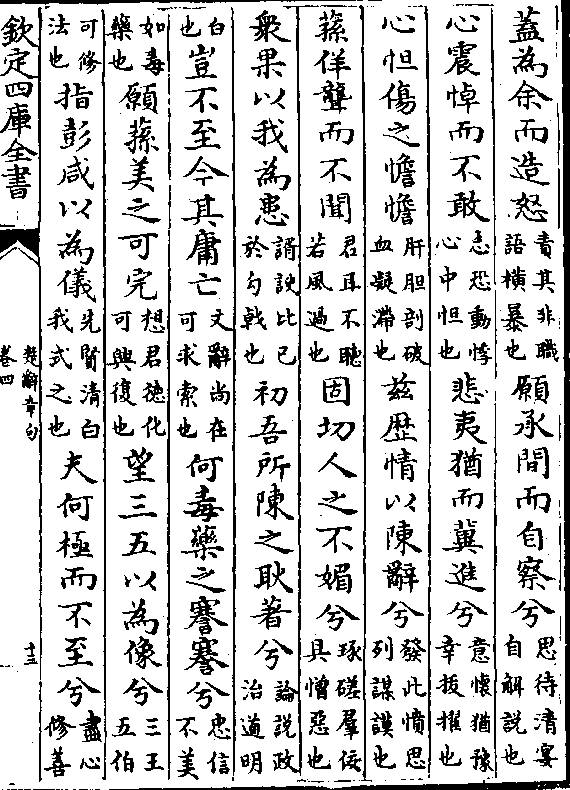 蓋為余而造怒責其非職語橫暴也願承間而自察兮思待清宴自解説也
心震悼而不敢志恐動悸心中怛也悲夷猶而冀進兮意懷猶豫幸拔擢也
心怛傷之憺憺肝胆剖破血凝滯也兹歴情以陳辭兮發此憤思列謀謨也
蓀佯聾而不聞君耳不聽若風過也固切人之不媚兮琢磋羣佞具憎惡也
衆果以我為患諝諛比己於勾戟也初吾所陳之耿著兮論説政治道明
白也豈不至今其庸亡文辭尚在可求索也何毒藥之謇謇兮忠信不美
如毒藥也願蓀美之可完想君德化可興復也望三五以為像兮三王五伯
可修法也指彭咸以為儀先賢清白我式之也夫何極而不至兮盡心修善
欽定四庫全書
楚辭章句
卷四
十三